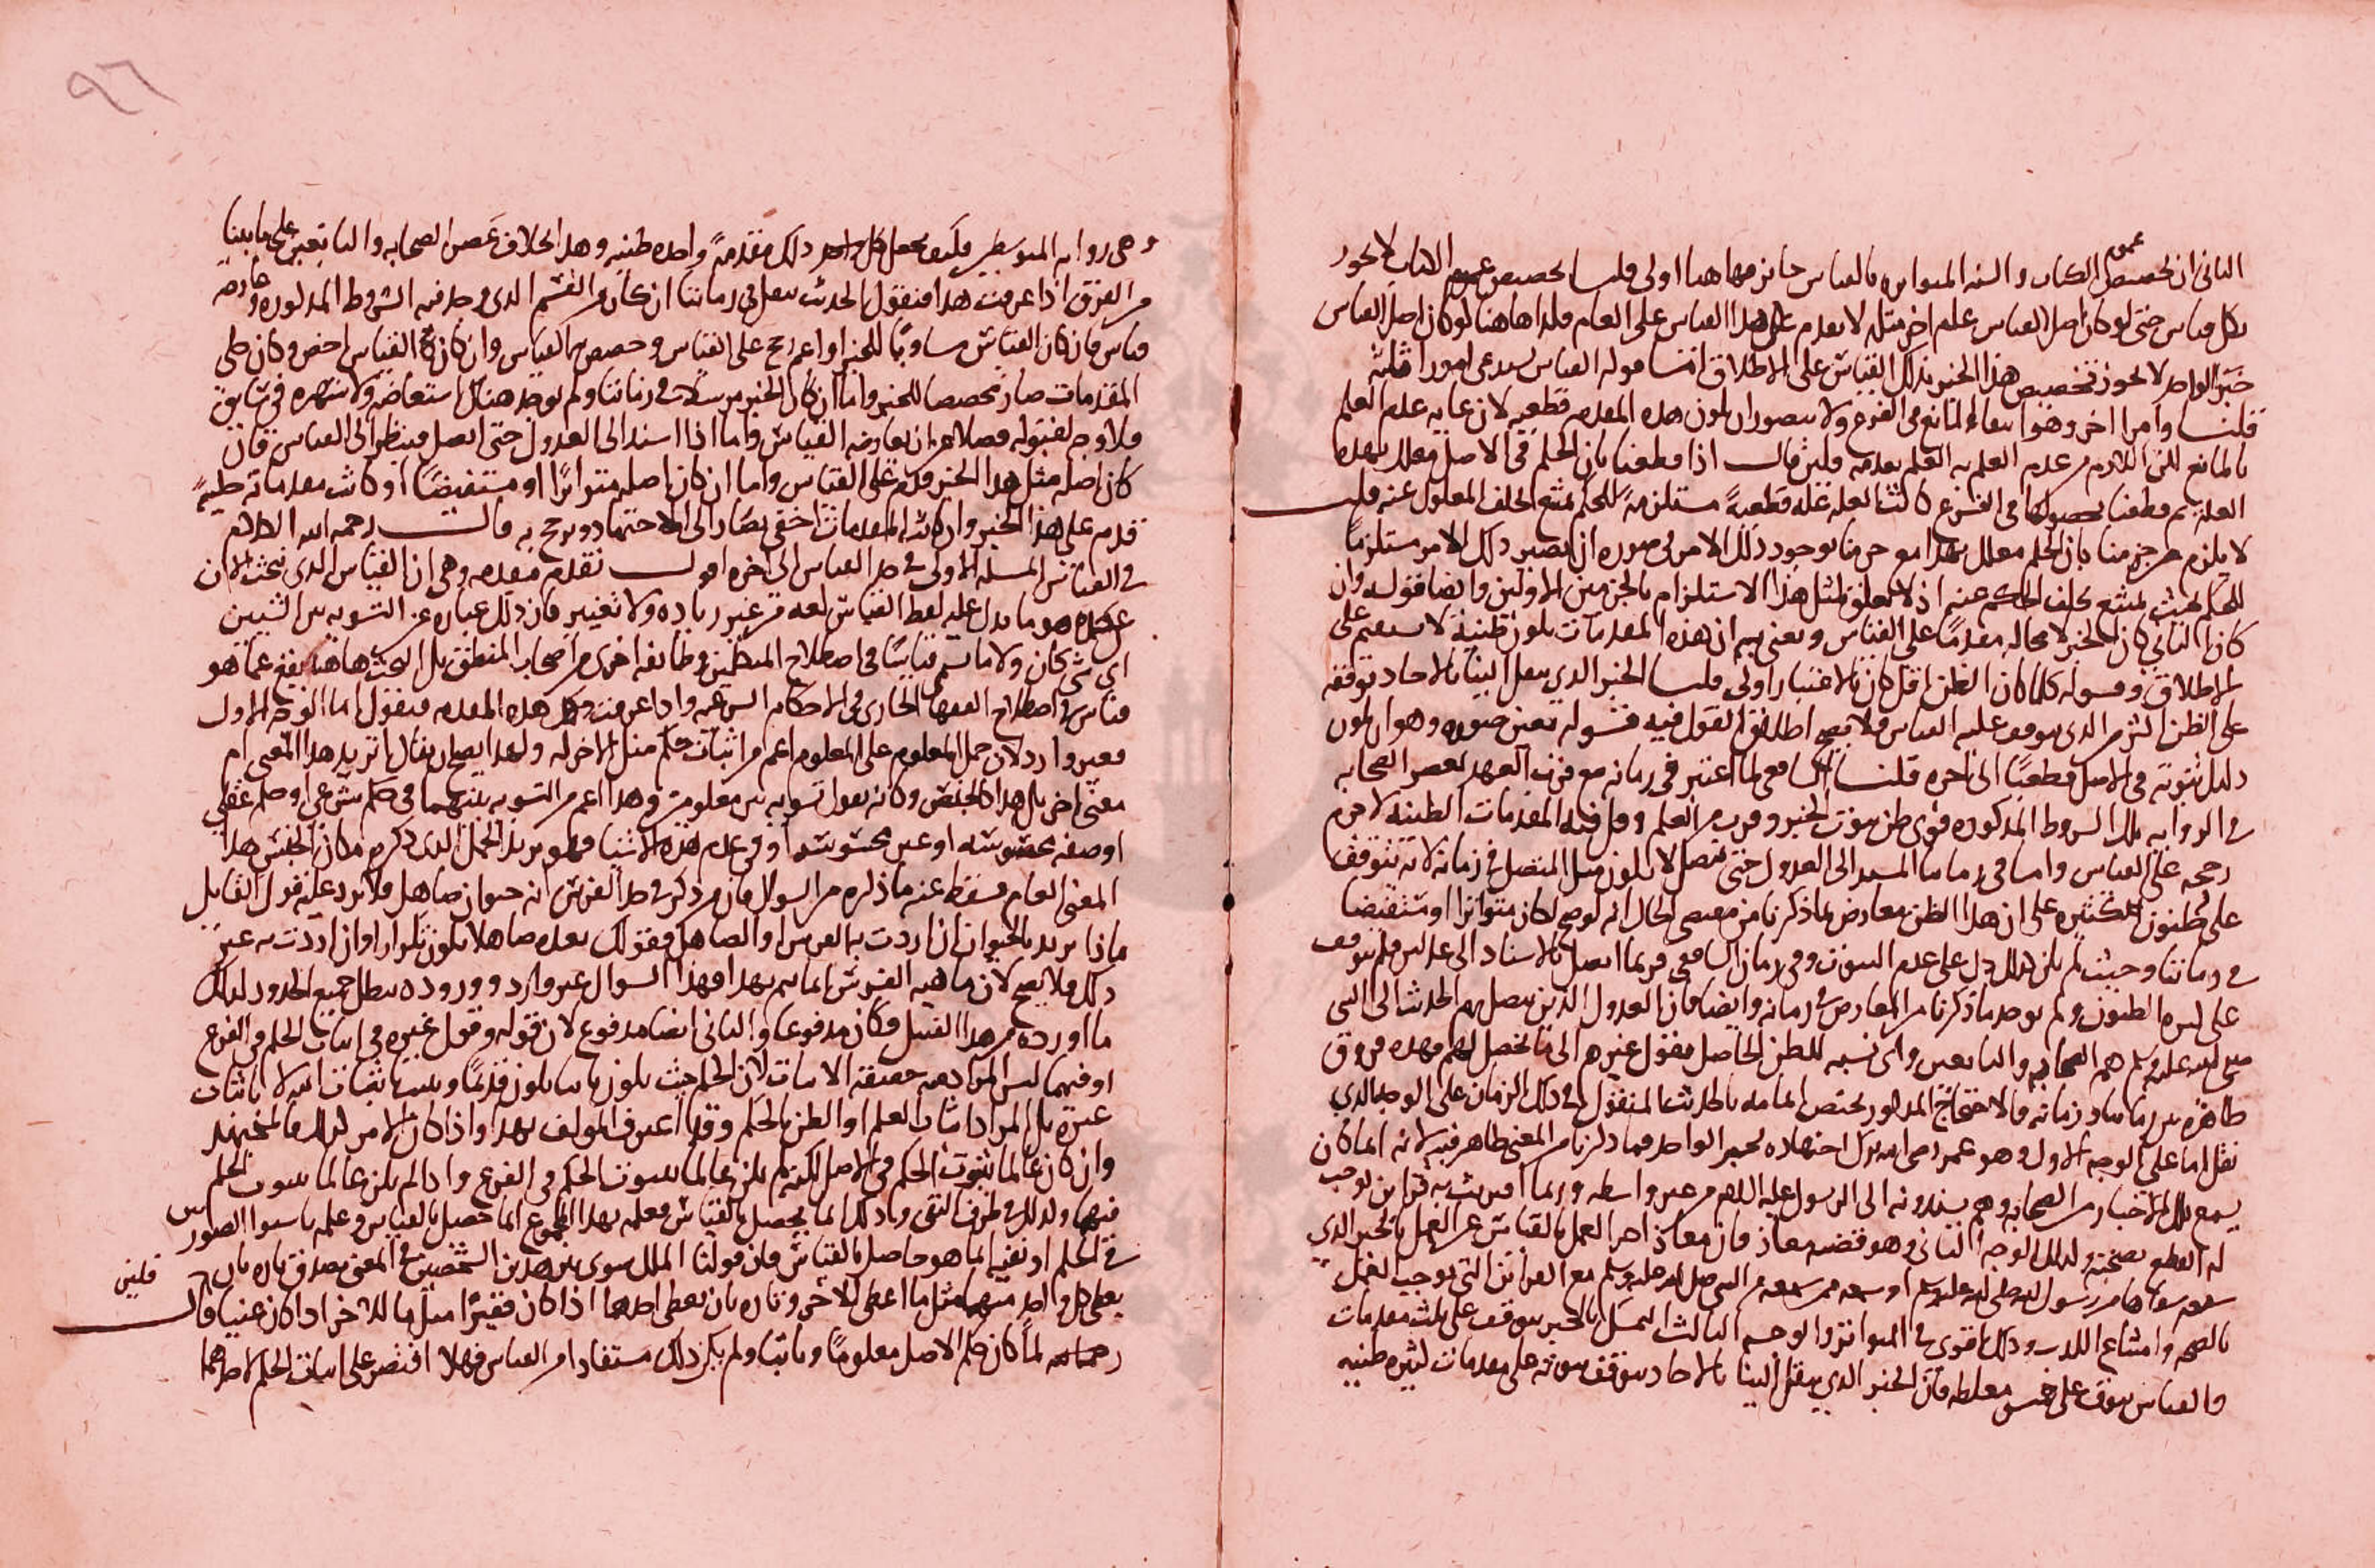 الثاني ان تخصيص عموم الكتاب والسنه المتواتره بالقياس جائز فهاهنا اولى قلنا تخصيص عموم الكتاب لا يجوز
بكل قياس حتى لو كان اصل القياس علم اخر مثله لا يقدم هذا القياس على العام فلذا هاهنا لو كان اصل القياس
خبر الواحد لا يجوز تخصيص هذا الخبر بذلك القياس على الاطلاق قوله القياس يستدعي امورا ثلثة
قلنا وامرا اخر وهو انتفاء المانع في الفرع ولا يتصور ان يكون هذه المقدمه قطعيه لان غايه عدم العلم
بالمانع لكن لا يلزم من عدم العلم به العلم بعدمه فلئن قال اذا قطعنا بان الحكم في الاصل معلل بهذه
العله ثم قطعنا بحصولها في الفرع كانت العله عله قطعية مستلزمة للحكم يمتنع تخلف المعلول عنه قلنا
لا يلزم من جزمنا بان الحكم معلل بهذا مع جزمنا بوجود ذلك الامر في صوره ان يصير ذلك الامر مستلزما
للحكم بحيث يمتنع تخلف الحكم عنه اذ لا تعلق لمثل هذا الاستلزام بالجزمين الاولين وايضا قوله وان
كان الثاني كان الخبر لا محاله مقدما على القياس ويعني به ان هذه المقدمات يكون ظنية لا يستقيم على
الاطلاق وقوله كلما كان الظن اقل كان بالاعتبار اولى قلنا الخبر الذي ينقل الينا بالاحاد توقفه
على الظن اكثر من الذي يتوقف عليه القياس فلا يصح اطلاق القول فيه فقوله يعني صوره وهو ان يكون
دليل ثبوته في الاصل قطعيا الى اخره قلنا الشافعي لما اعتبر في زمانه مع قرب العهد لعصر الصحابه
في الروايه تلك الشروط المذكوره قوي ظن ثبوت الخبر وقرب من العلم وقل فيه المقدمات الظنيه لا جرم
رجحه على القياس واما في زماننا المستند الى العدول حتى يتصل لا يكون مثل المتصل في زمانه لانه يتوقف
على ظنون كثيره على ان هذا الظن معارض بما ذكرنا من مقتضى الحال انه لو صح لكان متواترا او مستفيضا
في زماننا وحيث لم يكن كذلك دل على عدم الثبوت وفي زمان الشافعي فربما اتصل بالاسناد الى عدلين فلم يتوقف
على كثره الظنون ولم يوجد ما ذكرنا من المعارض في زمانه وايضا فان العدول الذين يتصل بهم الحديث الى النبي
صلى الله عليه وسلم هم الصحابه والتابعين واي نسبه للظن الحاصل بقول غيرهم الى ما يحصل لهم فهذه فروق
ظاهره بين زماننا وزمانه فالاحتجاج المذكور يختص امامه بالحديث المنقول في ذلك الزمان على الوجه الذي
نقل اما على الوجه الاول وهو عمر رضي الله ترك اجتهاده لخبر الواحد فما ذكرنا من المعنى ظاهر فيه لانه انما كان
يسمع تلك الاخبار من الصحابه وهم يسندونه الى الرسول عليه السلم من غير واسطه وربما اقترنت به قراين توجب
له القطع بصحته وكذلك الوجه الثاني وهو قضيه معاذ فان معاذ اخر العمل بالقياس عن العمل بالخبر الذي
سمعه شفاها من رسول الله صلى الله عليه وسلم او سمعه ممن سمعه من النبي صلى الله عليه وسلم مع القرائن التي توجب العمل
بالصحه وامتناع الكذب وذلك اقوى في المتواتر والوجه الثالث التمسك بالخبر يتوقف على ثلث مقدمات
والقياس يتوقف على خمس مغلطه فان الخبر الذي ينقل الينا بالاحاد يتوقف ثبوته على مقدمات كثيره ظنيه
٩٦
وهي روايه المتوسطين فكيف يجعل كل واحد ذلك مقدمة واحده ظنيه وهذا بخلاف عصر الصحابه والتابعين على ما بينا
من الفرق اذا عرفت هذا فنقول الحديث ينقل في زماننا ان كان من القسم الذي وجد فيه الشروط المذكوره وعارضه
قياس فان كان القياس مساويا للخبر او اعم رجح على القياس وخصص به القياس وان كان القياس اخص وكان ظني
المقدمات صار مخصصا للخبر واما ان كان الخبر مرسلا في زماننا ولم يوجد هناك استفاضه ولا شهره في سابق
فلا وجه لقبوله فضلا من ان يعارضه القياس واما اذا اسند الى العدول حتى اتصل فينظر الى القياس فان
كان اصله مثل هذا الخبر قدم على القياس واما ان كان اصله متواترا او مستفيضا او كانت مقدماته ظنية
قدم على هذا الخبر وان كانت المقدمات اخفى يصار الى الاجتهاد ويرجح به قال رحمه الله الكلام
في القياس المسئله الاولى في حد القياس الى اخره اقول نقدم مقدمه وهي ان القياس الذي نبحث الان
عنه هو ما يدل عليه لفظ القياس لغه من غير زياده ولا تغيير فان ذلك عباره عن التسويه بين الشيئين
اي شي كان ولا ما يسمى قياسا في اصطلاح المنطقيين وطائفه اخرى من اصحاب المنطق بل البحث هاهنا يقع عما هو
قياس في اصطلاح الفقهاء الجاري في الاحكام الشرعيه واذا عرفت هذه المقدمه فنقول اما الوجه الاول
فغير وارد لان حمل المعلوم على المعلوم اعم من اثبات حكم مثل الاخر له ولهذا يصح ان يقال اتريد هذا المعنى ام
معنى اخر بل هذا كالجنس وكانه يقول تسويه بين معلومين وهذا اعم من التسويه بينهما في حكم شرعي او حكم عقلي
او صفه محسوسه او غير محسوسه او في عدم هذه الاشيا فهو يريد بالحمل الذي ذكره مكان الجنس هذا
المعنى العام فسقط عنه ما ذكره من السوال فان من ذكر في حد الفرس انه حيوان صاهل فلا يرد عليه قول القايل
ماذا تريد بالحيوان ان اردت به الفرس او الصاهل فقولك بعده صاهلا يكون تكرارا وان اردت به غير
ذلك فلا يصح لان ماهيه الفرس انما يتم بهذا فهذا السوال غير وارد ووروده يبطل جميع الحدود لذلك
ما اورده من هذا القبيل فكان مدفوعا والثاني ايضا مدفوع لان قوله وقول غيره في اثبات الحكم في الفرع
او فيهما ليس المراد به حقيقة الاثبات لان الحكم حيث يكون ثابتا يكون قديما وليس اثباته باثبات
غيره بل المراد اثبات العلم او الظن بالحكم وقد اعترف المولف بهذا واذا كان الامر كذلك فالمجتهد
وان كان عالما بثبوت الحكم في الاصل لكنه لم يكن عالما بثبوت الحكم في الفرع واذا لم يكن عالما بثبوت الحكم
فيهما وكذلك في طرف النفي وذلك انما يحصل بالقياس فعلمه بهذا المجموع انما حصل بالقياس وعلمه باستوا الصورتين
في الحكم او نفيه انما هو حاصل بالقياس فان قولنا الملك سوى بين هذين الشخصين في المعنى يصدق تاره بان
يعطي كل واحد منهما مثل ما اعطى الاخر وتاره بان يعطي احدهما اذا كان فقيرا مثل ما للاخر اذا كان غنيا قال فلئن
رحمه الله لما كان حكم الاصل معلوما وثابتا ولم يكن ذلك مستفادا من القياس فهلا اقتصر على اثبات الحكم لاحدهما